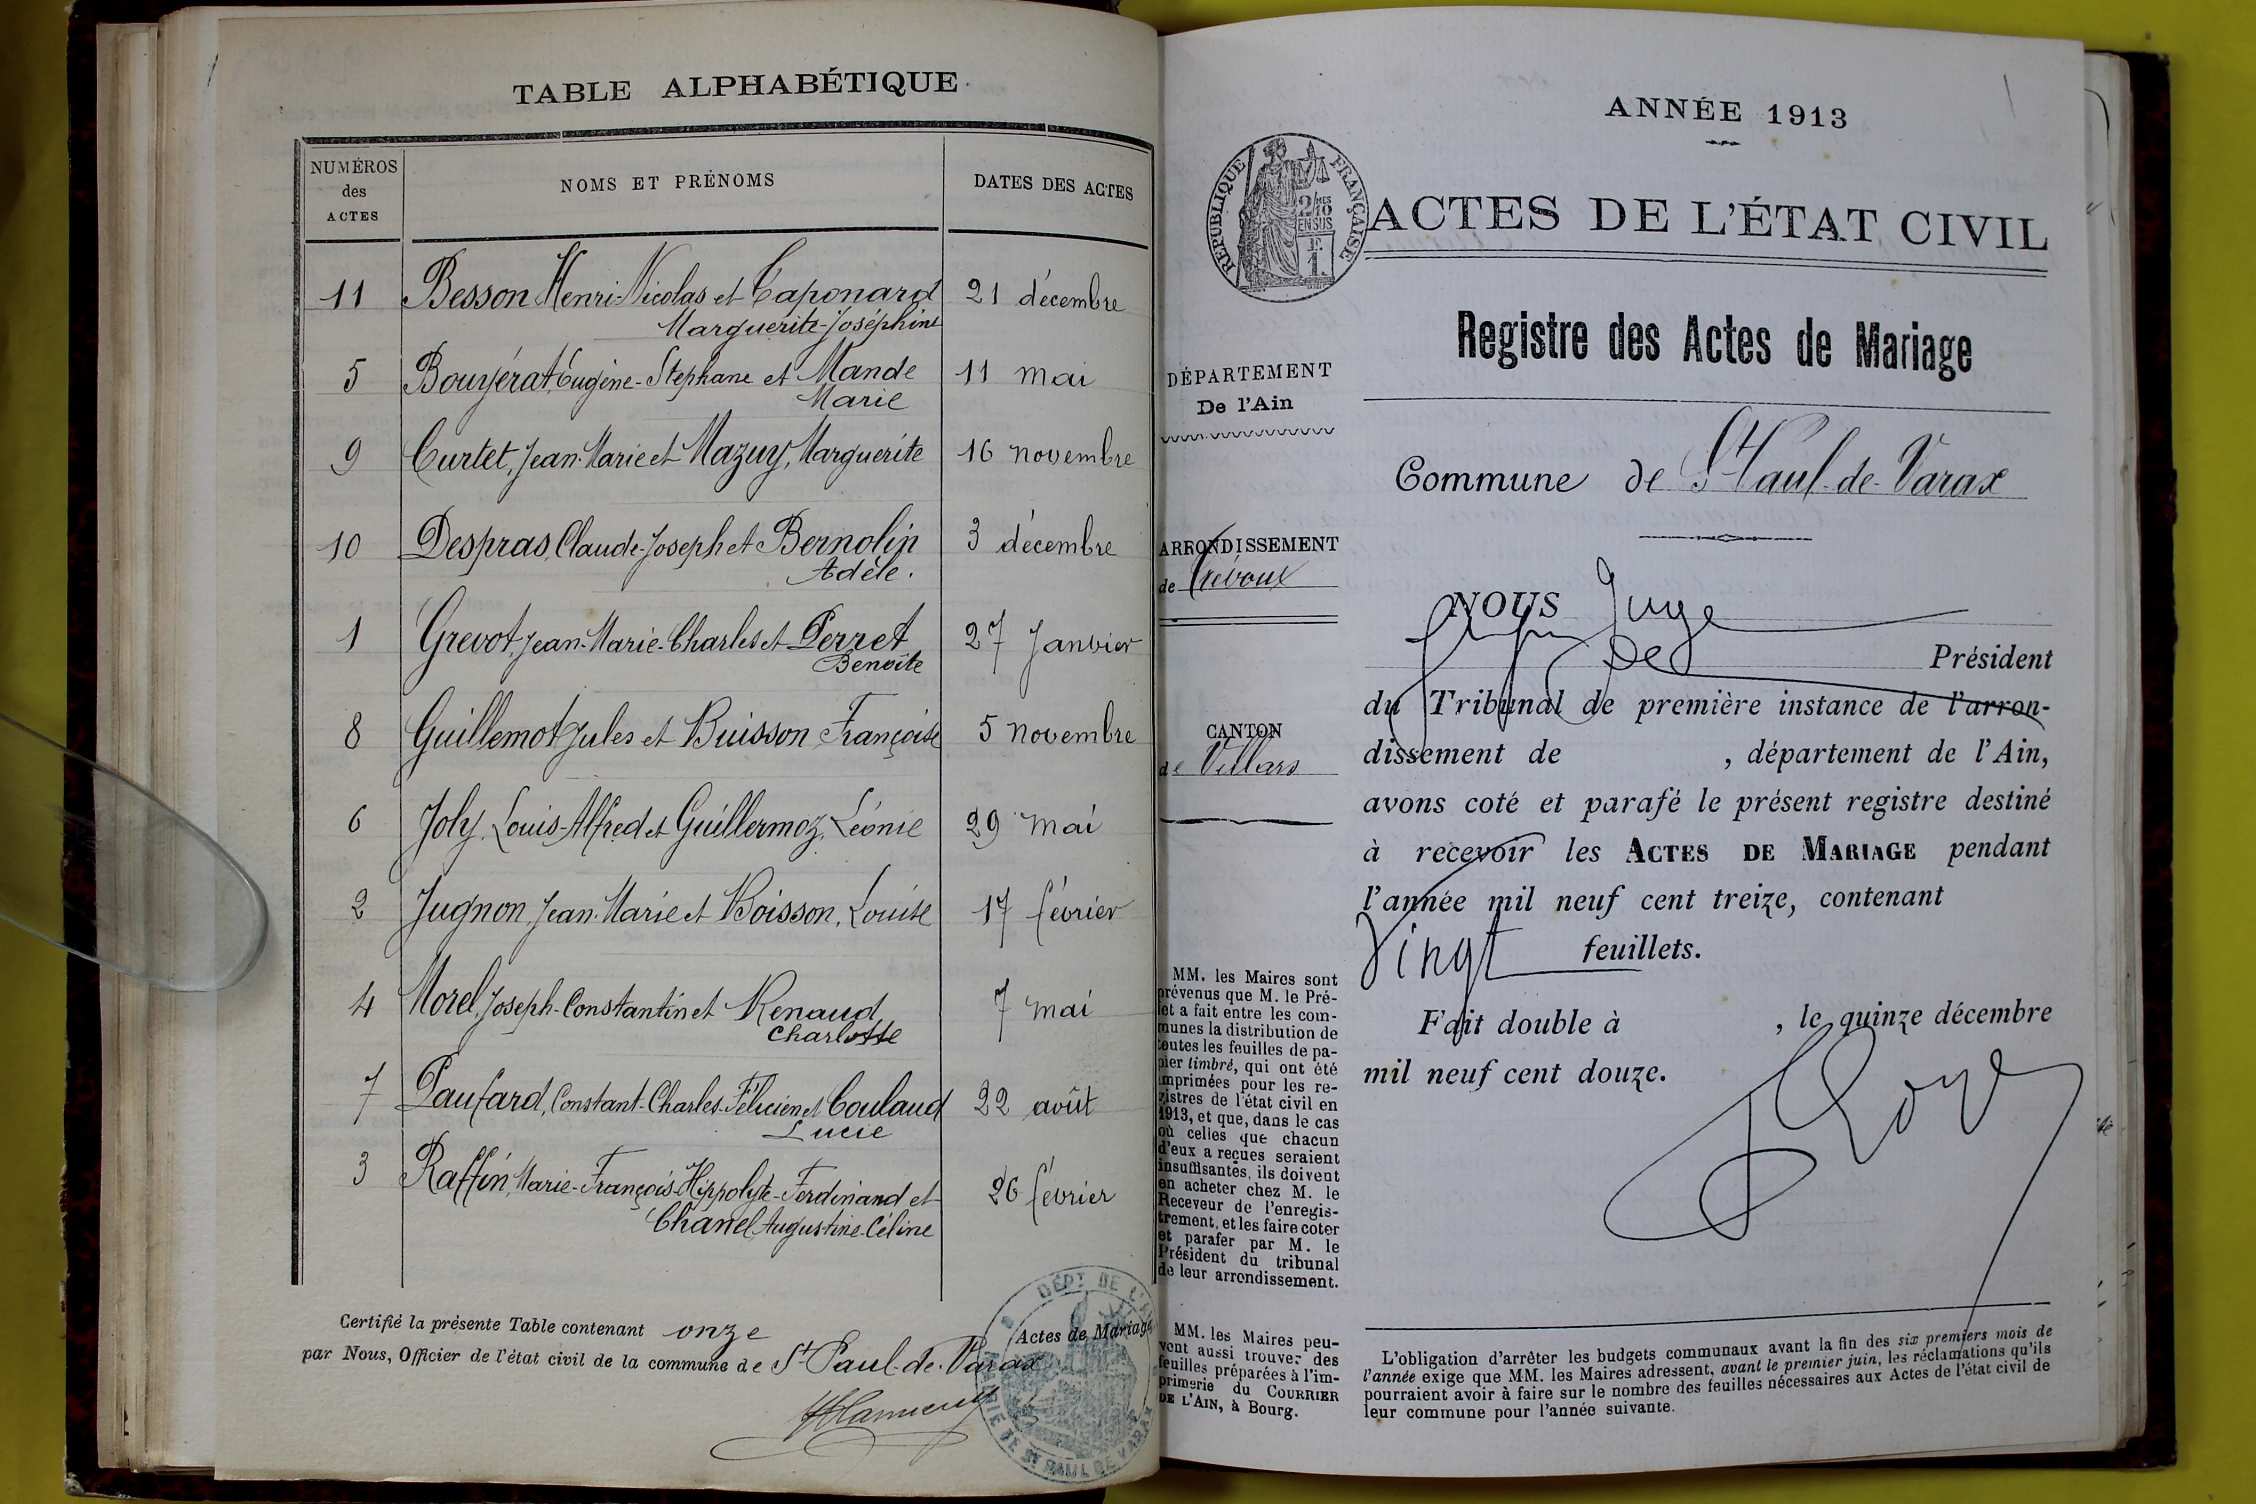 TABLE ALPHABÉTIQUE
NUMÉROS
des
ACTES
NOMS ET PRÉNOMS
DATES DES ACTES
11 Besson Henri-Nicolas et Caponard 21 décembre
Marguerite-Joséphine
5 Bouyérat Eugène-Stephane et Mande 11 mai
Marie
9 Curtet, Jean-Marie et Mazuy, Marguerite 16 novembre
10 Despras, Claude-Joseph et Bernolin 3 décembre
Adèle.
1 Grevot, Jean-Marie-Charles et Perret 27 Janvier
Benoîte
8 Guillemot Jules et Buisson Françoise 5 novembre
6 Joly, Louis-Alfred et Guillermoz, Léonie 29 mai
2 Jugnon, Jean-Marie et Boisson, Louise 17 février
4 Morel, Joseph-Constantin et Renaud 7 mai
Charlotte
7 Paufard, Constant-Charles-Félicien et Coulaud 22 août
Lucie
3 Raffin, Marie-François-Hippolyte-Ferdinand et 26 février
Chanel Augustine-Céline
Certifié la présente Table contenant onze Actes de Mariage
par Nous, Officier de l'état civil de la commune de St Paul-de-Varax
DÉPT DE L'
MAIRIE DE ST PAUL DE VARAX
ANNÉE 1913
RÉPUBLIQUE FRANÇAISE
2/10
EN SUS
1F.
ACTES DE L'ÉTAT CIVIL
Registre des Actes de Mariage
DÉPARTEMENT
De l'Ain
Commune de St Paul-de-Varax
ARRONDISSEMENT
de Trévoux
CANTON
de Villars
NOUS Juge
Président
du Tribunal de première instance de l'arron-
dissement de , département de l'Ain,
avons coté et parafé le présent registre destiné
à recevoir les ACTES DE MARIAGE pendant
l'année mil neuf cent treize, contenant
Vingt feuillets.
Fait double à , le quinze décembre
mil neuf cent douze.
MM. les Maires sont
prévenus que M. le Pré-
fet a fait entre les com-
munes la distribution de
toutes les feuilles de pa-
pier timbré, qui ont été
imprimées pour les re-
gistres de l'état civil en
1913, et que, dans le cas
où celles que chacun
d'eux a reçues seraient
insuffisantes, ils doivent
en acheter chez M. le
Receveur de l'enregis-
trement, et les faire coter
et parafer par M. le
Président du tribunal
de leur arrondissement.
MM. les Maires peu-
vent aussi trouver des
feuilles préparées à l'im-
primerie du COURRIER
DE L'AIN, à Bourg.
L'obligation d'arrêter les budgets communaux avant la fin des six premiers mois de
l'année exige que MM. les Maires adressent, avant le premier juin, les réclamations qu'ils
pourraient avoir à faire sur le nombre des feuilles nécessaires aux Actes de l'état civil de
leur commune pour l'année suivante.